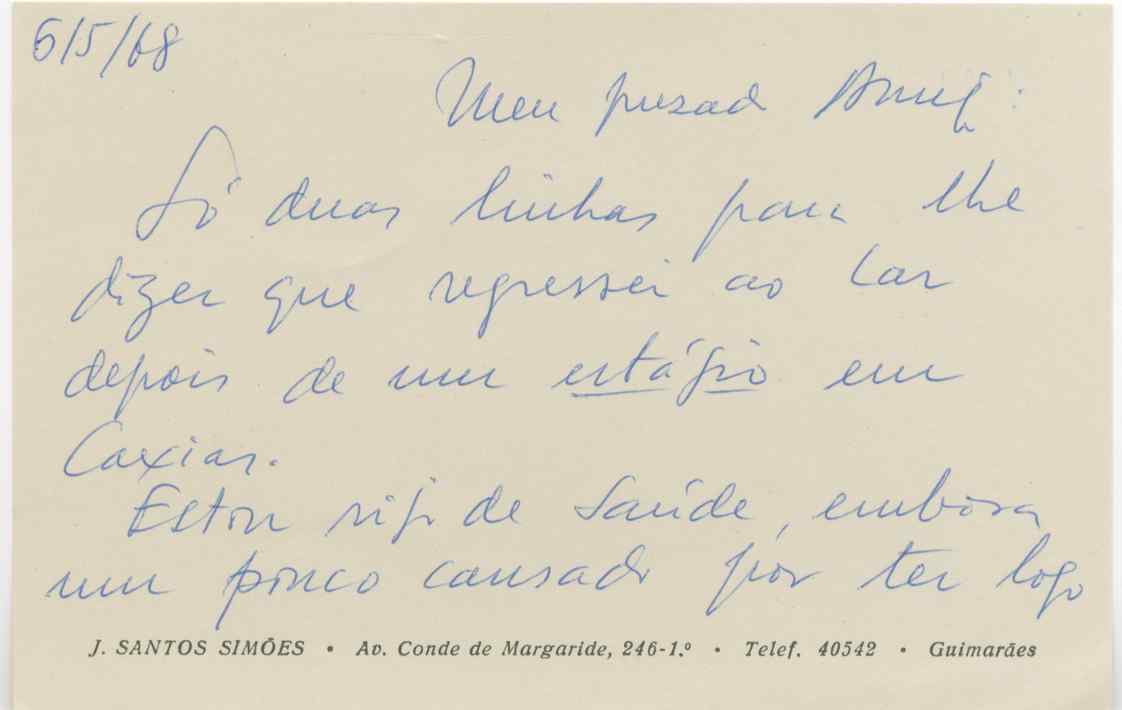 6/5/68
Meu prezado Amigo:
Só duas linhas para lhe
dizer que regressei ao lar
depois de um estágio em
Caxias.
Estou rijo de saúde, embora
um pouco cansado por ter logo
J. SANTOS SIMÕES • Av. Conde de Margaride, 246-1.º • Telef. 40542 • Guimarães